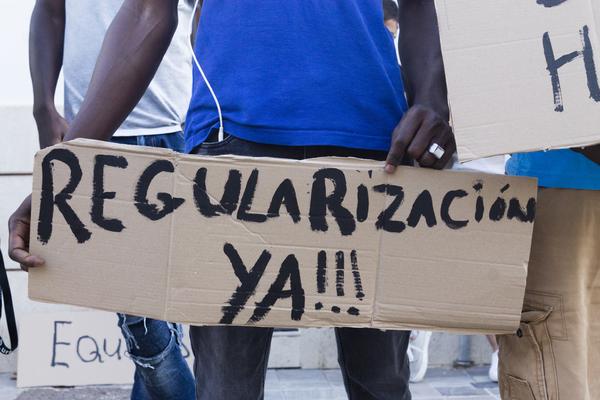 REGULARización
YA!!!
H